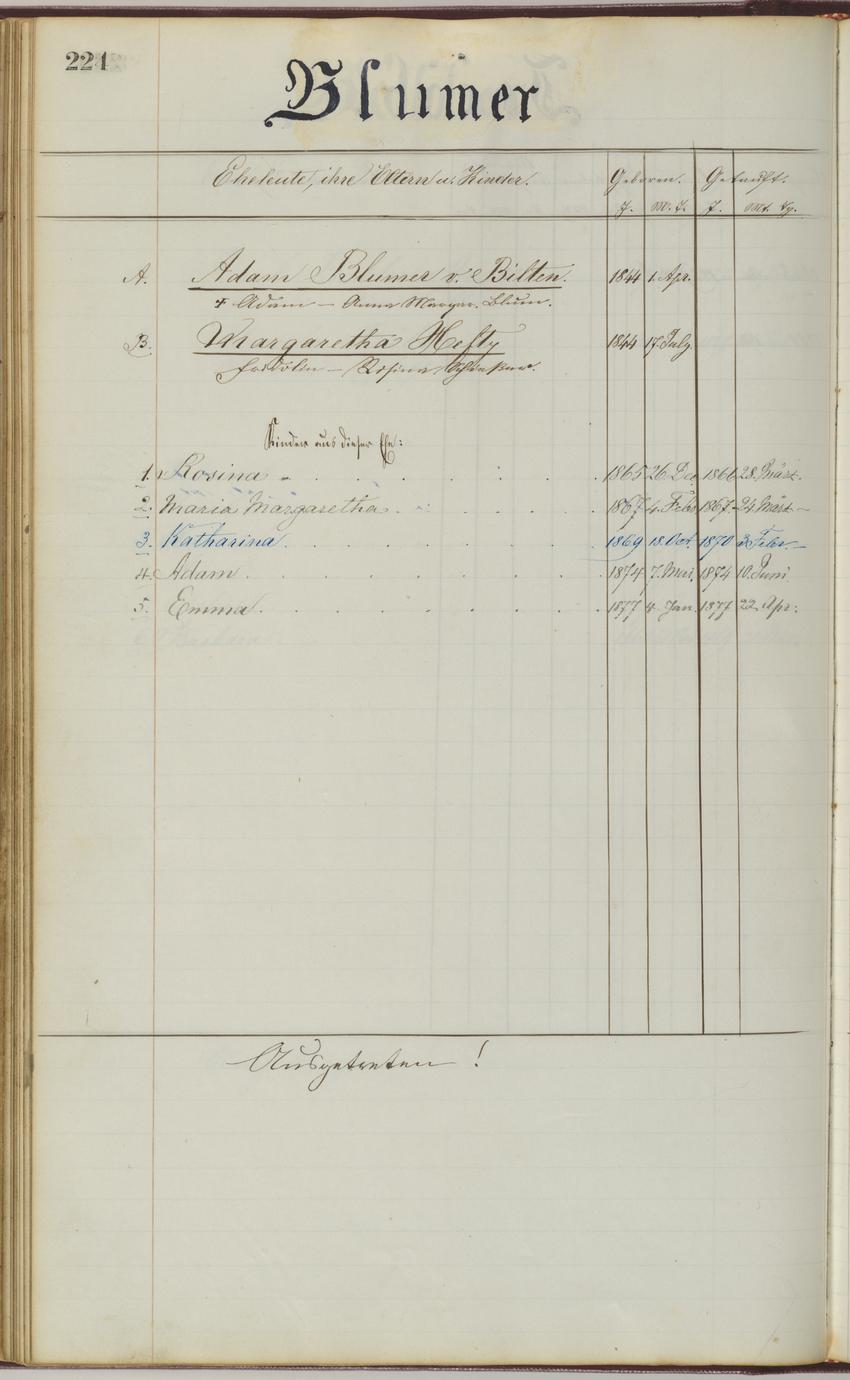 221
Blumer
Eheleute, ihre Eltern u. Kinder. Geboren. Getauft.
J. M. T. J. Mt. Tg.
A. Adam Blumer v. Bilten. 1844 1. Apr.
+ Adam — Anna Margar. Blum.
B. Margaretha Hefty 1844 17. July.
Fridolin — Rosina
Kinder aus dieser Ehe:
1. Rosina 1865 26 Dec. 1866 28. März.
2. Maria Margaretha. 1867 4. Febr 1867. 24 März —
3. Katharina. 1869 18. Oct. 1870 3. Febr. —
4. Adam. 1874 7. Mai. 1874 10. Juni
5. Emma. 1877 4. Jan. 1877 22. Apr.
Ausgetreten !